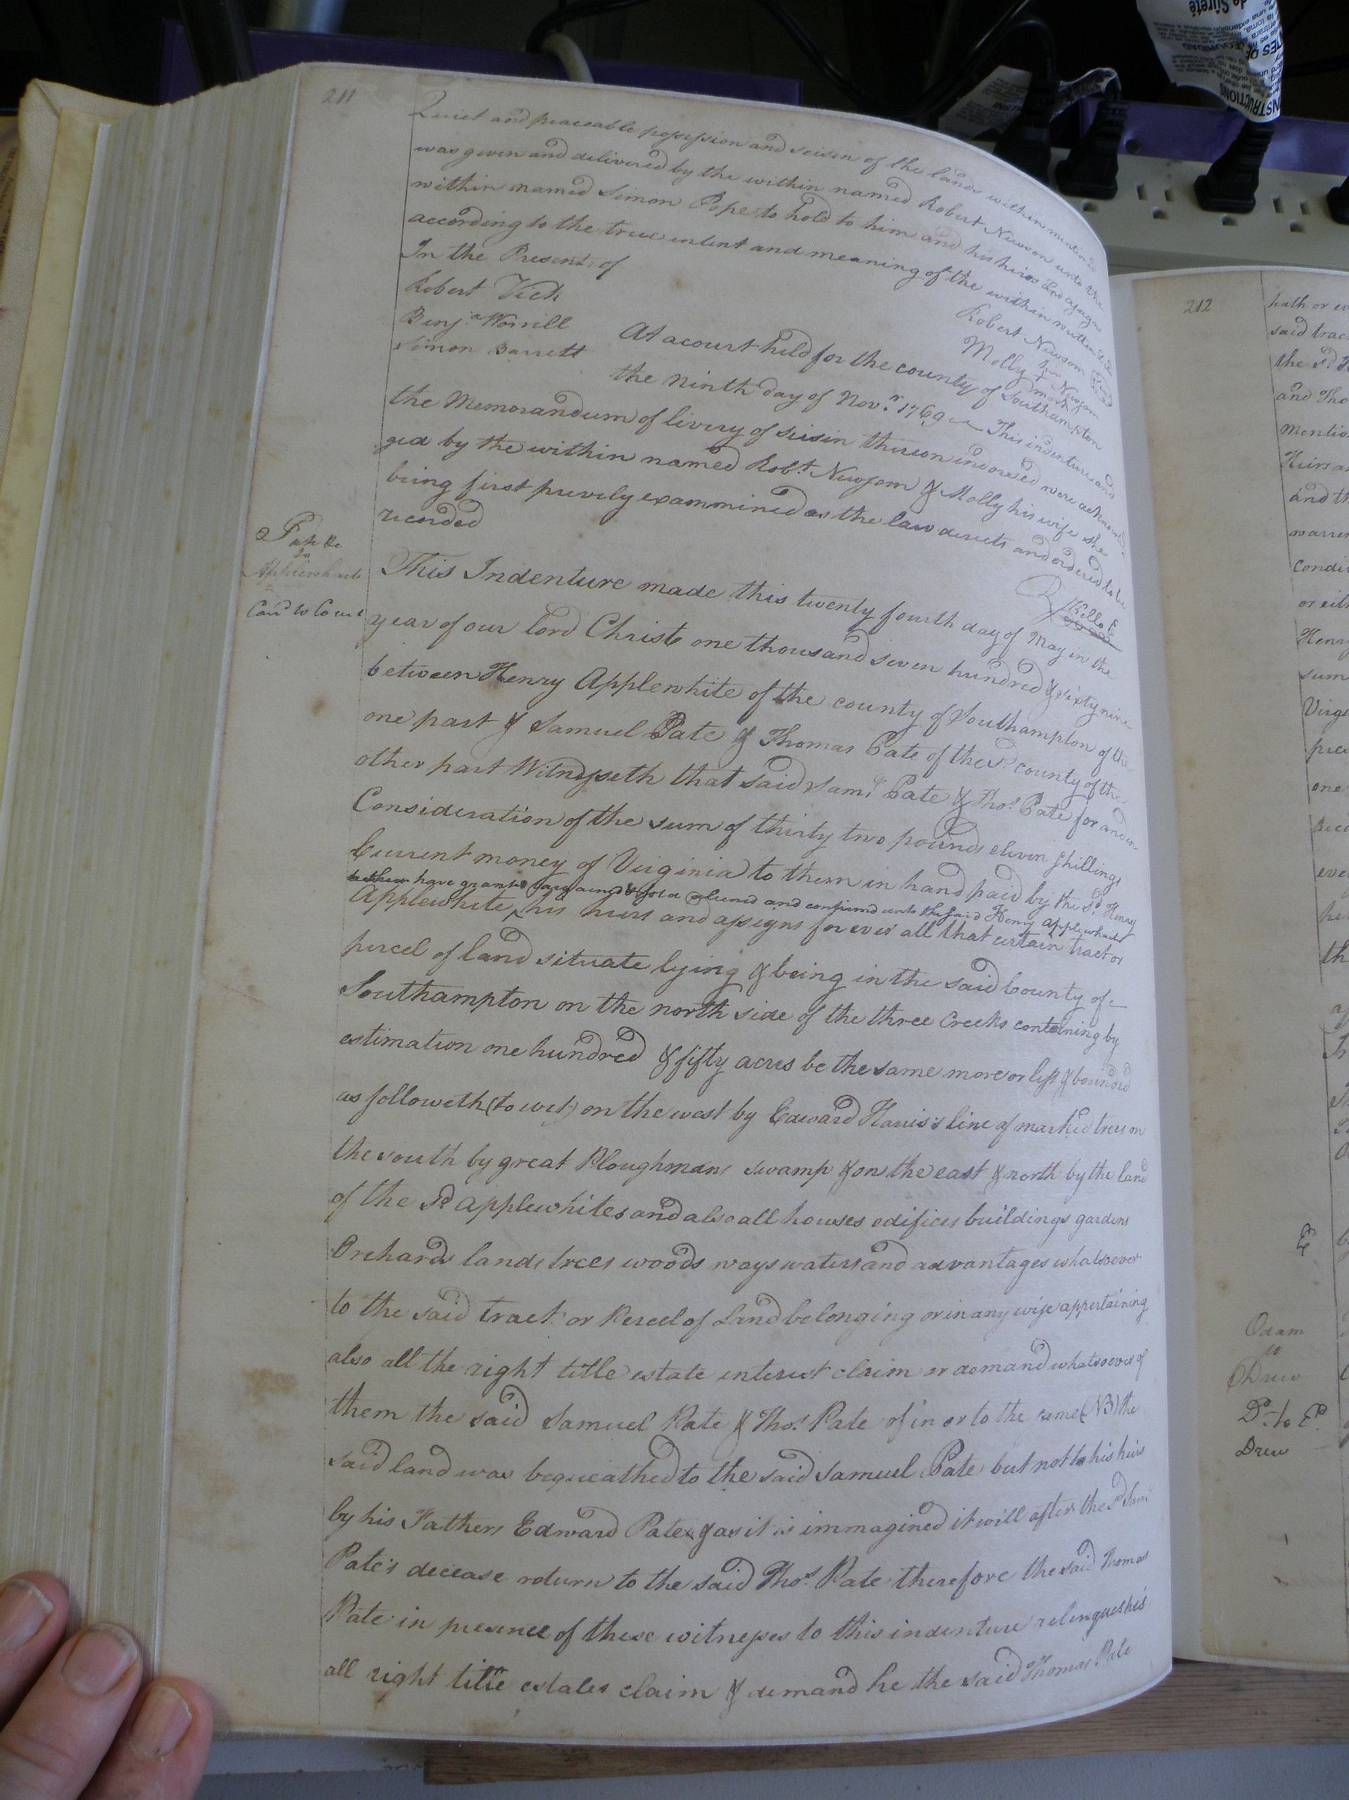 211
Quiet and peaceable possession and seisen of the lands within mention'd
was given and delivered by the within named Robert Newsom unto the
within named Simon Pope to hold to him and his heirs and assigns
according to the true intent and meaning of the within written
In the Presens of
Robert Newsom
Robert Vick
Molly her mark Newsom
Benja Worrill
Simon Barrett
At a court held for the county of Southampton
the ninth day of Novr 1769 This indenture and
the Memorandum of livery of seisin thereon indorsed were acknowled
ged by the within named Robt Newsom & Molly his wife she
being first previly exammined as the law directs and ordered to be
recorded
Pate &c
to
Applewhite
This Indenture made this twenty fourth day of May in the
year of our lord Christ one thousand seven hundred & sixty nine
between Henry Applewhite of the county of Southampton of the
one part & Samuel Pate & Thomas Pate of the sd county of the
other part Witnesseth that said Saml Pate & Thos Pate for and in
Consideration of the sum of thirty two pounds eleven shillings
Current money of Virginia to them in hand paid by the sd Henry
have granted bargained & sold released and confirmed unto the said Henry applewhite
Applewhite his heirs and assigns for ever all that certain tract or
percel of land situate lying & being in the said County of
Southampton on the north side of the three Creeks containing by
estimation one hundred & fifty acres be the same more or less & bounded
as followeth (to wit) on the west by Edward Harris's line of marked trees on
the south by great Ploughmans swamp & on the east & north by the land
of the Sd applewhites and also all houses edifices buildings gardens
Orchards lands trees woods ways waters and advantages whatsoever
to the said tract or Percel of Land belonging or in any wise appertaining
also all the right title estate interest claim or demand whatsoever of
them the said Samuel Pate & Thos Pate of in or to the same (NB) the
said land was bequeathed to the said Samuel Pate but not to his heirs
by his Fathers Edward Pate & as it is immagined it will after the sd Saml
Pate's decease return to the said Thos Pate therefore the said Thomas
Pate in presence of these witnesses to this indenture relinqueshes
all right title estates claim & demand he the said Thomas Pate
212
hath or
said trac
the sd
and Tho
mentio
Heirs a
and th
condi
or eith
Henry
sum
Virg
one
Odam
to
Drew
Do to Do
Drew